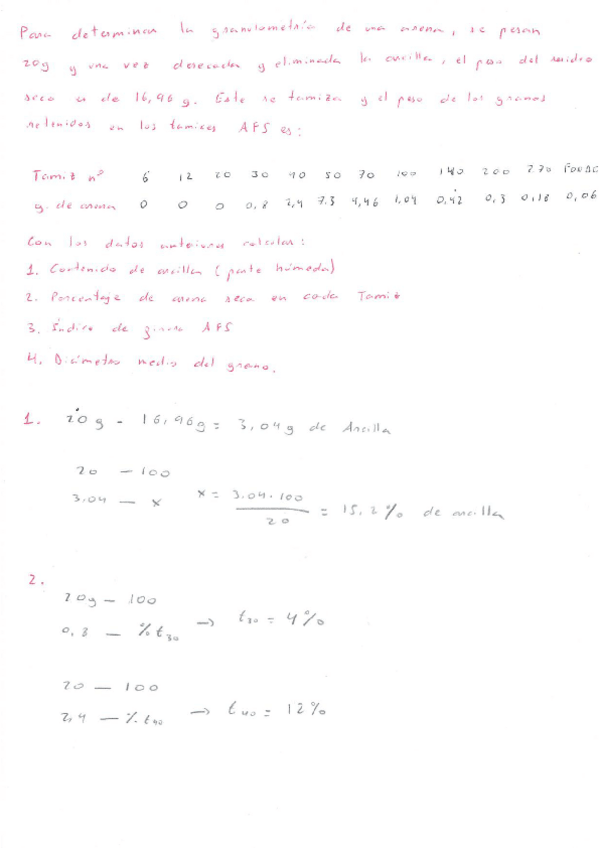 Para determinar la granulometría de una arena, se pesan
20g y una vez desecada y eliminada la arcilla, el peso del residuo
seco es de 16,96 g. Este se tamiza y el peso de los granos
retenidos en los tamices AFS es:
Tamiz nº 6 12 20 30 40 50 70 100 140 200 270 FONDO
g. de arena 0 0 0 0,8 2,4 7.3 4,46 1,04 0,42 0,3 0,18 0,06
Con los datos anteriores calcular:
1. Contenido de arcilla (parte húmeda)
2. Porcentaje de arena seca en cada Tamiz
3. Índice de finura AFS
4. Diámetro medio del grano.
1. 20g - 16,96g = 3,04g de Arcilla
20 — 100
3.04 — x x = 3.04·100 / 20 = 15,2% de arcilla
2.
20g — 100
0,8 — % t30 → t30 = 4%
20 — 100
2,4 — % t40 → t40 = 12%